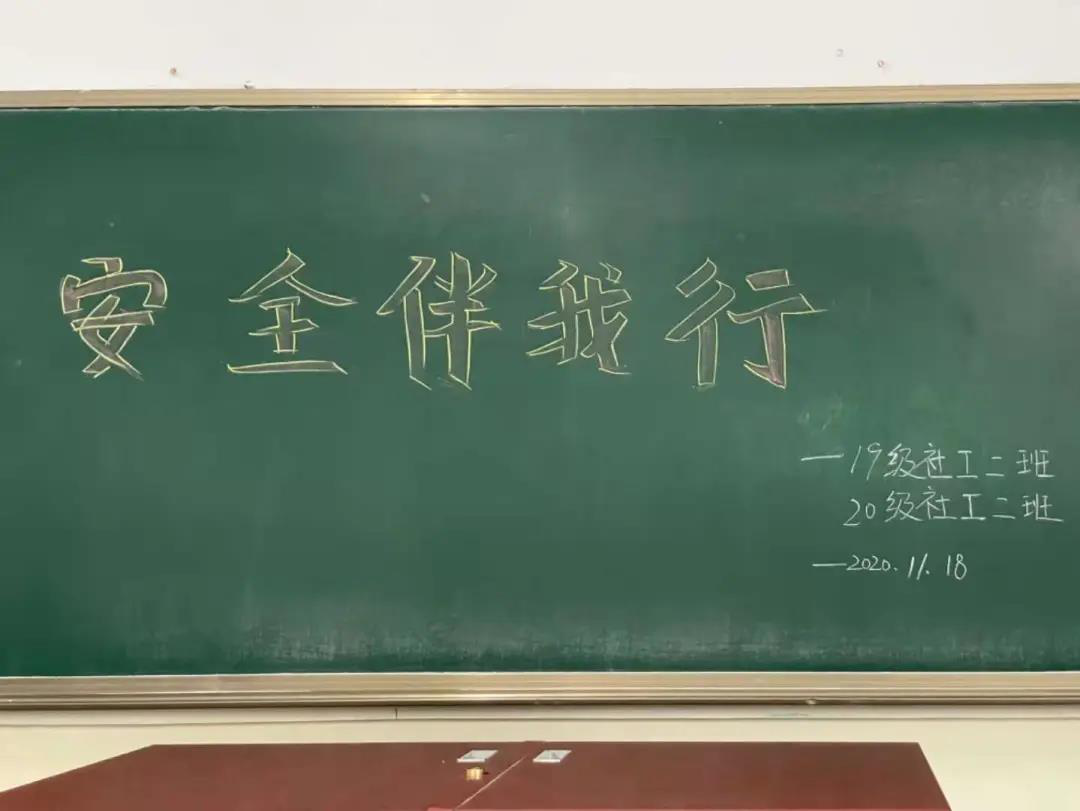 安全伴我行
—19级社工二班
20级社工二班
—2020.11.18